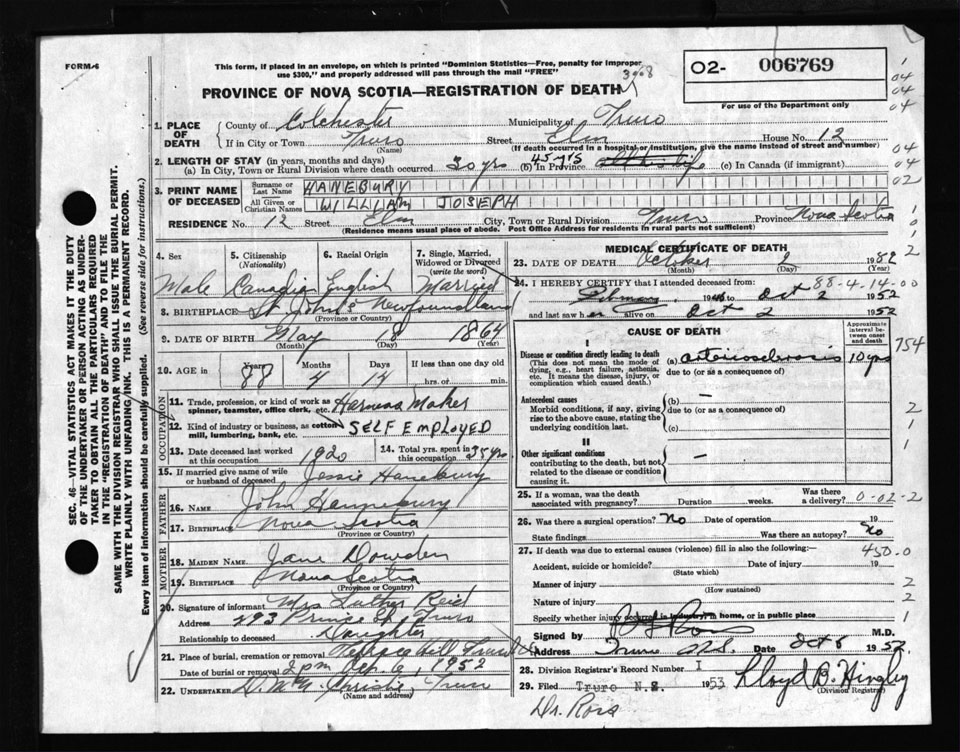 FORM 6
This form, if placed in an envelope, on which is printed "Dominion Statistics—Free, penalty for improper
use $300," and properly addressed will pass through the mail "FREE"
PROVINCE OF NOVA SCOTIA—REGISTRATION OF DEATH
O2- 006769
For use of the Department only
1. PLACE OF DEATH
County of Colchester Municipality of Truro
If in City or Town Truro (Name) Street Elm House No. 12
(If death occurred in a hospital or institution, give the name instead of street and number)
2. LENGTH OF STAY (in years, months and days)
(a) In City, Town or Rural Division where death occurred 30 yrs (b) In Province 45 yrs (c) In Canada (if immigrant)
3. PRINT NAME OF DECEASED
Surname or Last Name HANEBURY
All Given or Christian Names WILLIAM JOSEPH
RESIDENCE No. 12 Street Elm City, Town or Rural Division Truro Province Nova Scotia
(Residence means usual place of abode. Post Office Address for residents in rural parts not sufficient)
4. Sex Male
5. Citizenship (Nationality) Canadian
6. Racial Origin English
7. Single, Married, Widowed or Divorced (write the word) Married
8. BIRTHPLACE St John's Newfoundland
(Province or Country)
9. DATE OF BIRTH May 18 1864
(Month) (Day) (Year)
10. AGE in Years 88 Months 4 Days If less than one day
hrs. or min.
OCCUPATION
11. Trade, profession, or kind of work as spinner, teamster, office clerk, etc. Harness Maker
12. Kind of industry or business, as cotton mill, lumbering, bank, etc. SELF EMPLOYED
13. Date deceased last worked at this occupation 1920
14. Total yrs. spent in this occupation 35 yrs
15. If married give name of wife or husband of deceased Jessie Hanebury
FATHER
16. Name John Hannebury
17. Birthplace Nova Scotia
(Province or Country)
MOTHER
18. MAIDEN NAME Jane Dowden
19. BIRTHPLACE Nova Scotia
(Province or Country)
20. Signature of informant Mrs Luther Reid
Address 293 Prince St. Truro
Relationship to deceased Daughter
21. Place of burial, cremation or removal Terrace Hill Truro
Date of burial or removal 2pm Oct. 6, 1952
22. UNDERTAKER Christie, Truro
(Name and address)
MEDICAL CERTIFICATE OF DEATH
23. DATE OF DEATH October 2 1952
(Month) (Day) (Year)
88-4-14-00
24. I HEREBY CERTIFY that I attended deceased from:
to Oct 2 1952
and last saw h alive on Oct 2 1952
CAUSE OF DEATH
Approximate interval between onset and death
I
Disease or condition directly leading to death
(This does not mean the mode of dying, e.g., heart failure, asthenia, etc. It means the disease, injury, or complication which caused death.)
(a) arteriosclerosis 10 yrs
due to (or as a consequence of)
754
Antecedent causes
Morbid conditions, if any, giving rise to the above cause, stating the underlying condition last.
(b) —
due to (or as a consequence of)
(c)
II
Other significant conditions
contributing to the death, but not related to the disease or condition causing it.
—
25. If a woman, was the death associated with pregnancy? Duration weeks. Was there a delivery?
0-02-2
26. Was there a surgical operation? No Date of operation 19
State findings Was there an autopsy? No
27. If death was due to external causes (violence) fill in also the following:
450-0
Accident, suicide or homicide? Date of injury 19
(State which)
Manner of injury
(How sustained)
Nature of injury
Specify whether injury occurred in industry, in home, or in public place
Signed by M.D.
Address Truro N.S. Date Oct 1952
28. Division Registrar's Record Number I
29. Filed Truro N.S. 1953 Lloyd B. Hingley
(Division Registrar)
Dr. Ross
SEC. 46 - VITAL STATISTICS ACT MAKES IT THE DUTY
OF THE UNDERTAKER OR PERSON ACTING AS UNDER-
TAKER TO OBTAIN ALL THE PARTICULARS REQUIRED
IN THE "REGISTRATION OF DEATH" AND TO FILE THE
SAME WITH THE DIVISION REGISTRAR WHO SHALL ISSUE THE BURIAL PERMIT.
WRITE PLAINLY WITH UNFADING INK. THIS IS A PERMANENT RECORD.
Every item of information should be carefully supplied. (See reverse side for instructions.)